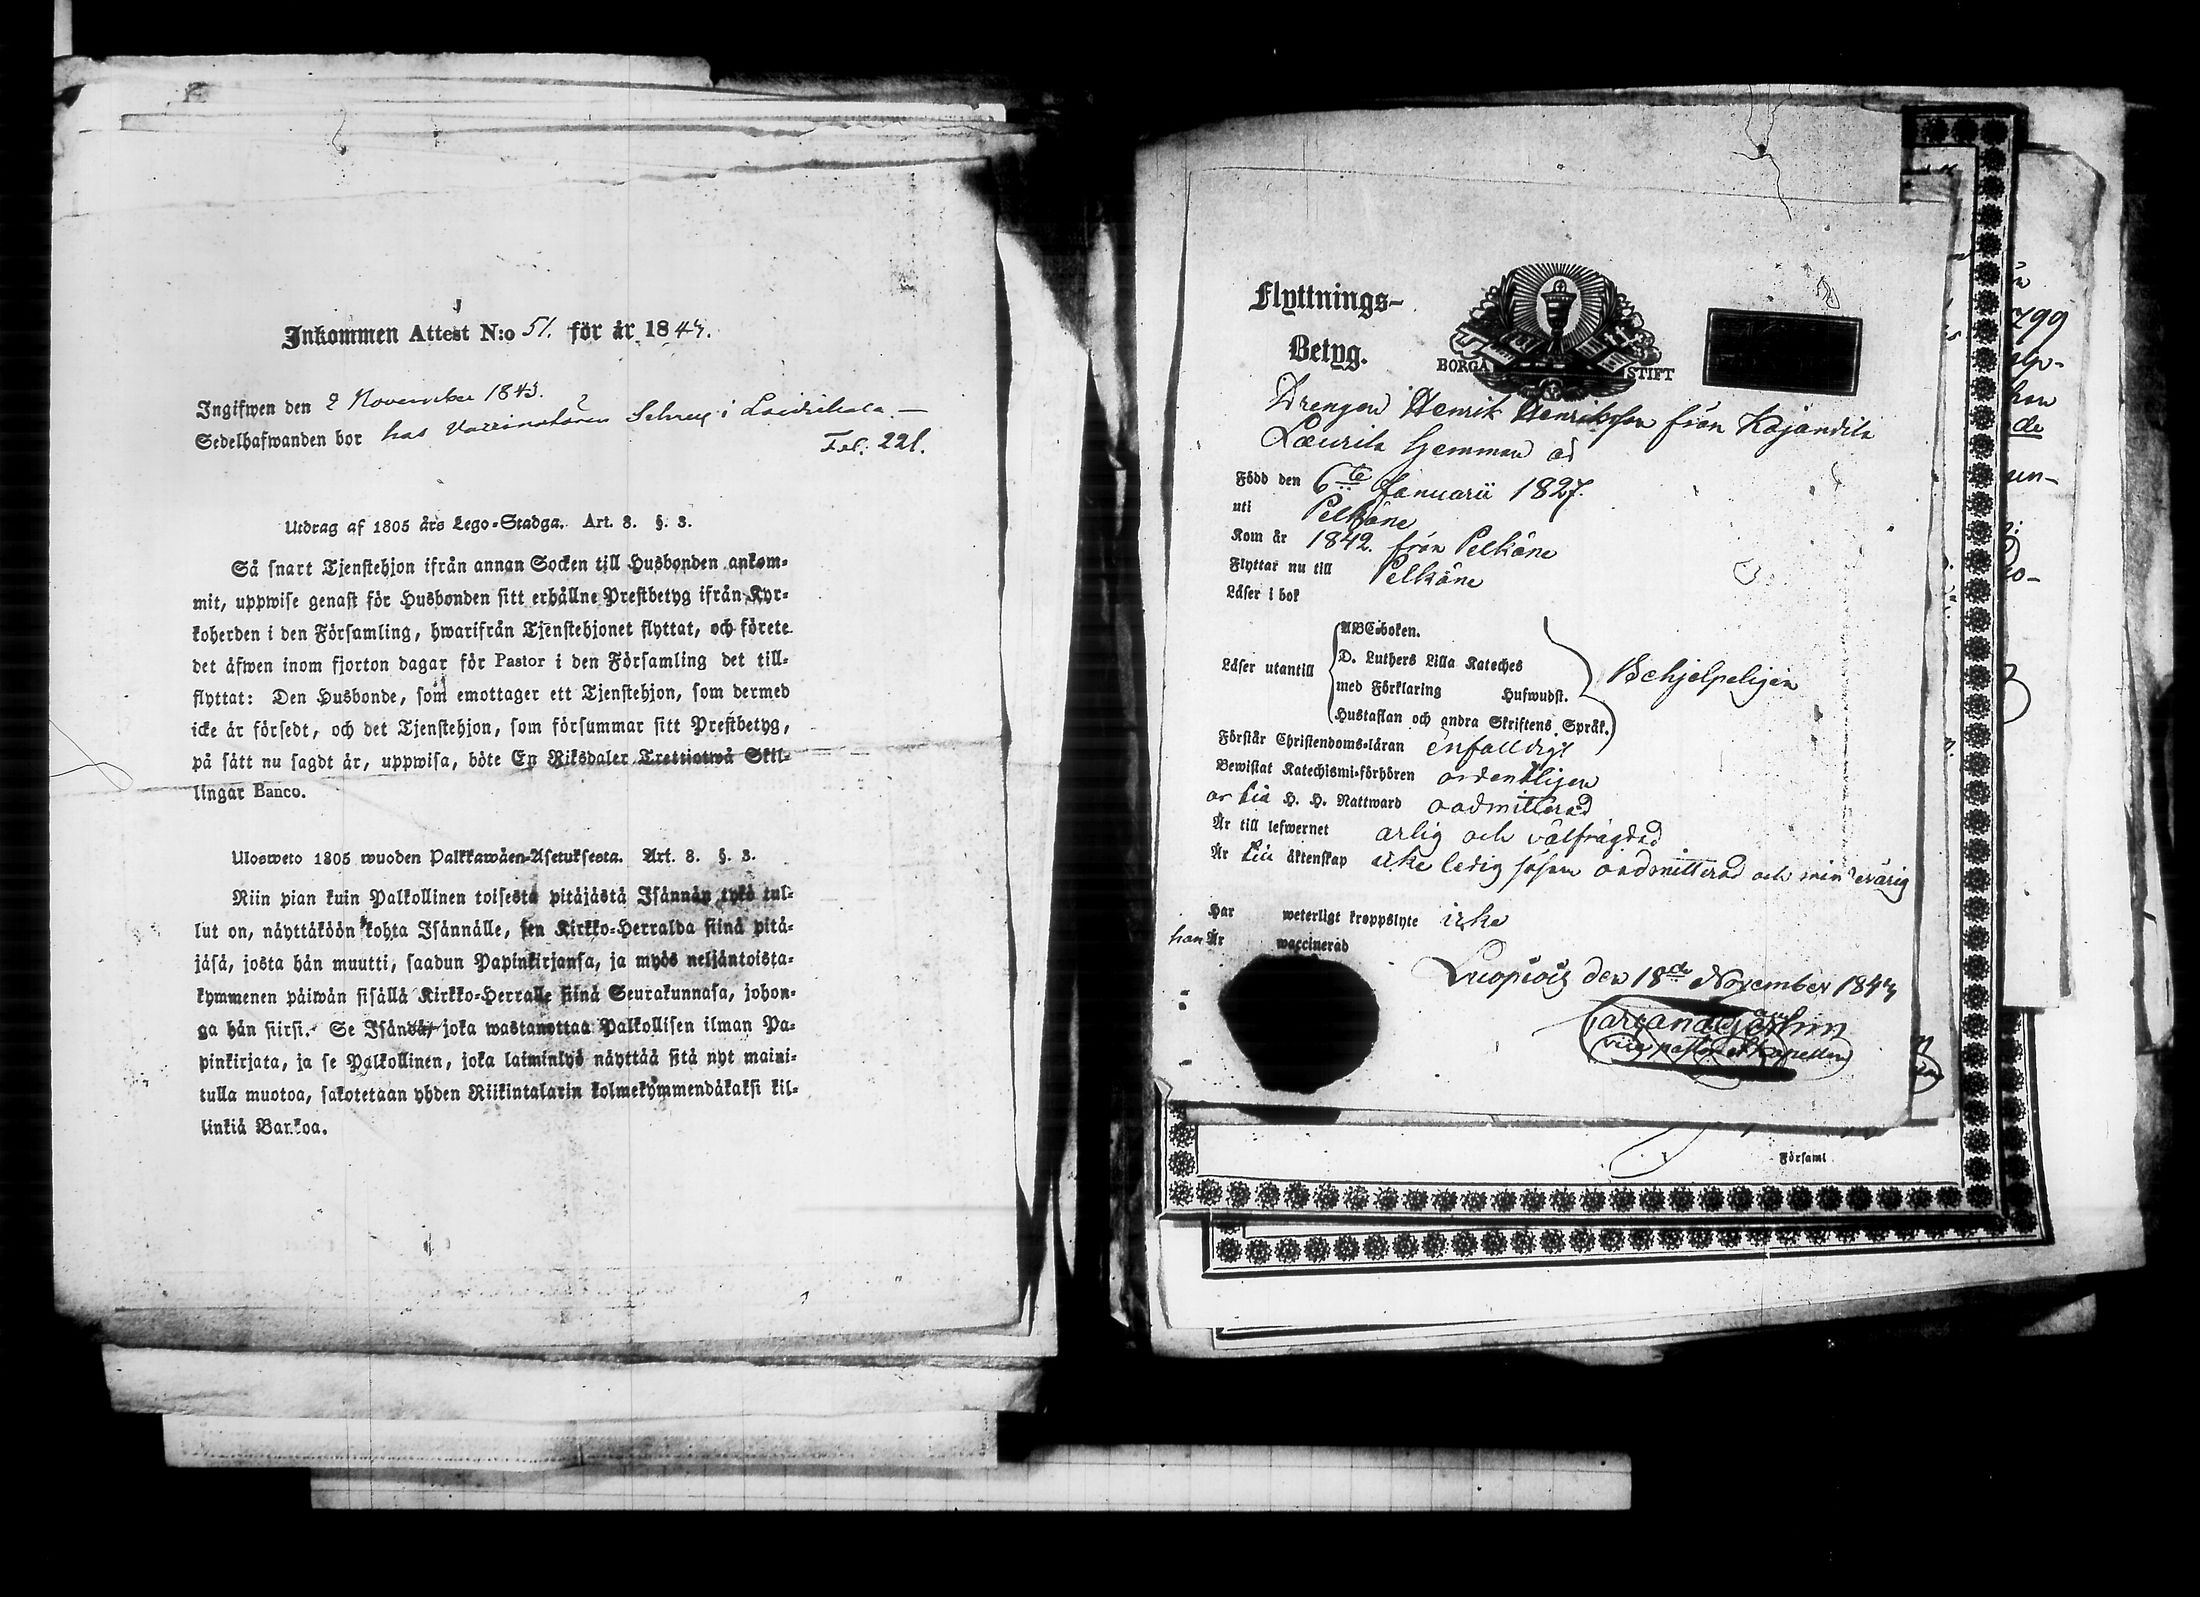 Inkommen Attest N:o 51. för år 1843.
Ingifwen den 2 November 1843.
Sedelhafwanden bor hos Vaccinatören i
Fol. 221.
Utdrag af 1805 års Lego-Stadga. Art. 8. §. 3.
Så snart Tjenstehjon ifrån annan Socken till Husbonden ankom-
mit, uppwise genast för Husbonden sitt erhållne Prestbetyg ifrån Kyr-
koherden i den Församling, hwarifrån Tjenstehjonet flyttat, och förete
det äfwen inom fjorton dagar för Pastor i den Församling det till-
flyttat: Den Husbonde, som emottager ett Tjenstehjon, som dermed
icke är försedt, och det Tjenstehjon, som försummar sitt Prestbetyg,
på sätt nu sagdt är, uppwisa, böte En Riksdaler Trettiotwå Skil-
lingar Banco.
Ulosweto 1805 wuoden Palkkawäen-Asetuksesta. Art. 8. §. 3.
Niin pian kuin Palkollinen toisesta pitäjästä Isännän tykö tul-
lut on, näyttäköön kohta Isännälle, sen Kirkko-Herralda siinä pitä-
jäsä, josta hän muutti, saadun Papinkirjansa, ja myös neljäntoista-
kymmenen päiwän sisällä Kirkko-Herralle siinä Seurakunnasa, johon-
ga hän siirsi. Se Isändä, joka wastanottaa Palkollisen ilman Pa-
pinkirjata, ja se Palkollinen, joka laiminlyö näyttää sitä nyt maini-
tulla muotoa, sakotetaan yhden Riikintalarin kolmekymmendäkaksi kil-
linkiä Bankoa.
Flyttnings-
Betyg.
BORGÅ STIFT
Drengen Henrik Henriksson från Kajandila
Laurila hemman är
Född den 6te Januarii 1827.
uti Pelkäne
Kom år 1842. från Pelkäne
Flyttar nu till Pelkäne
Läser i bok
ABC-boken.
Läser utantill D. Luthers Lilla Kateches
med Förklaring Hufwudst.
Hustaflan och andra Skriftens Språk.
Behjelpeligen
Förstår Christendoms-läran enfalldigt
Bewistat Katechismi-förhören ordentligen
är till H. H. Nattward oadmitterad
Är till lefwernet ärlig och välfrägdad
Är till äktenskap icke ledig såsom oadmitterad och minderårig
Har weterligt kroppslyte icke
han Är waccinerad
Luopiois den 18de November 1843
vice pastor et Kapellan
1799
de
Församl